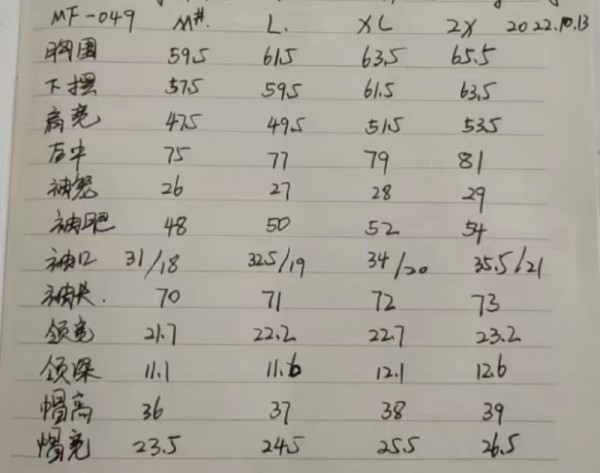 MF-049 M# L. XL 2X 2022.10.13
胸围 59.5 61.5 63.5 65.5
下摆 57.5 59.5 61.5 63.5
肩宽 47.5 49.5 51.5 53.5
后中 75 77 79 81
袖笼 26 27 28 29
袖肥 48 50 52 54
袖口 31/18 32.5/19 34/20 35.5/21
袖长. 70 71 72 73
领宽 21.7 22.2 22.7 23.2
领深 11.1 11.6 12.1 12.6
帽高 36 37 38 39
帽宽 23.5 24.5 25.5 26.5